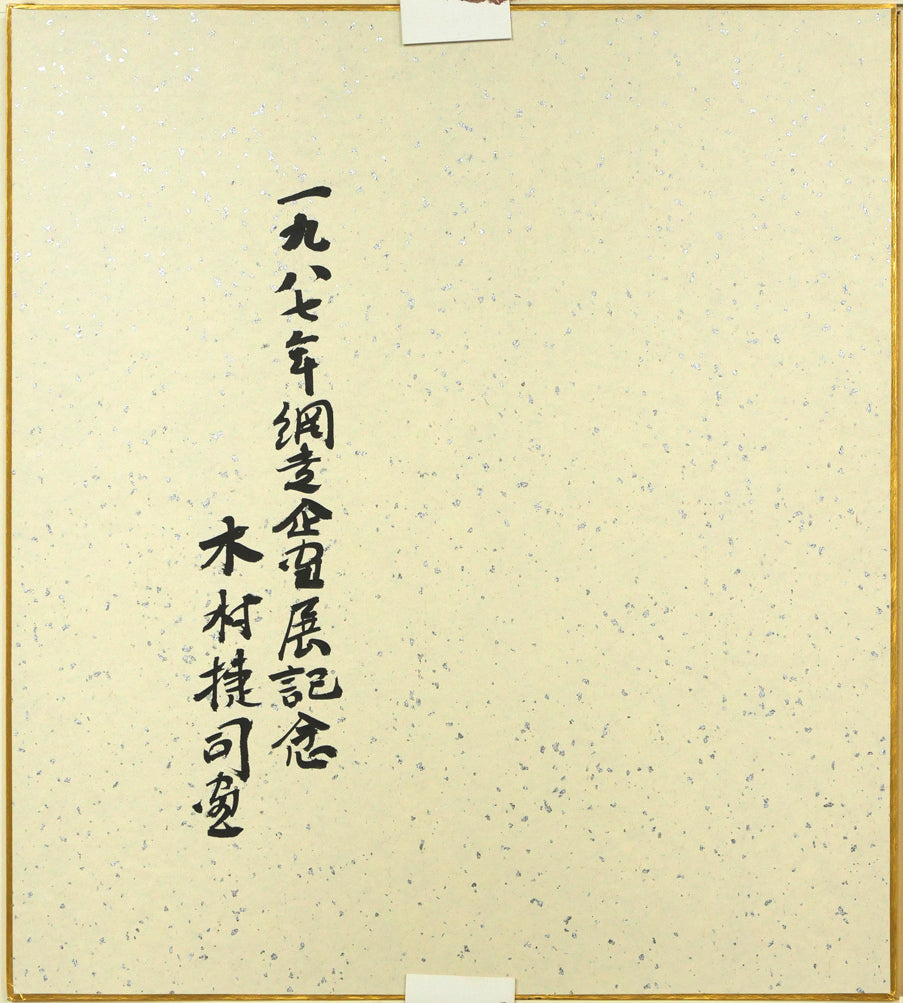 一九八七年網走企画展記念
木村捷司画